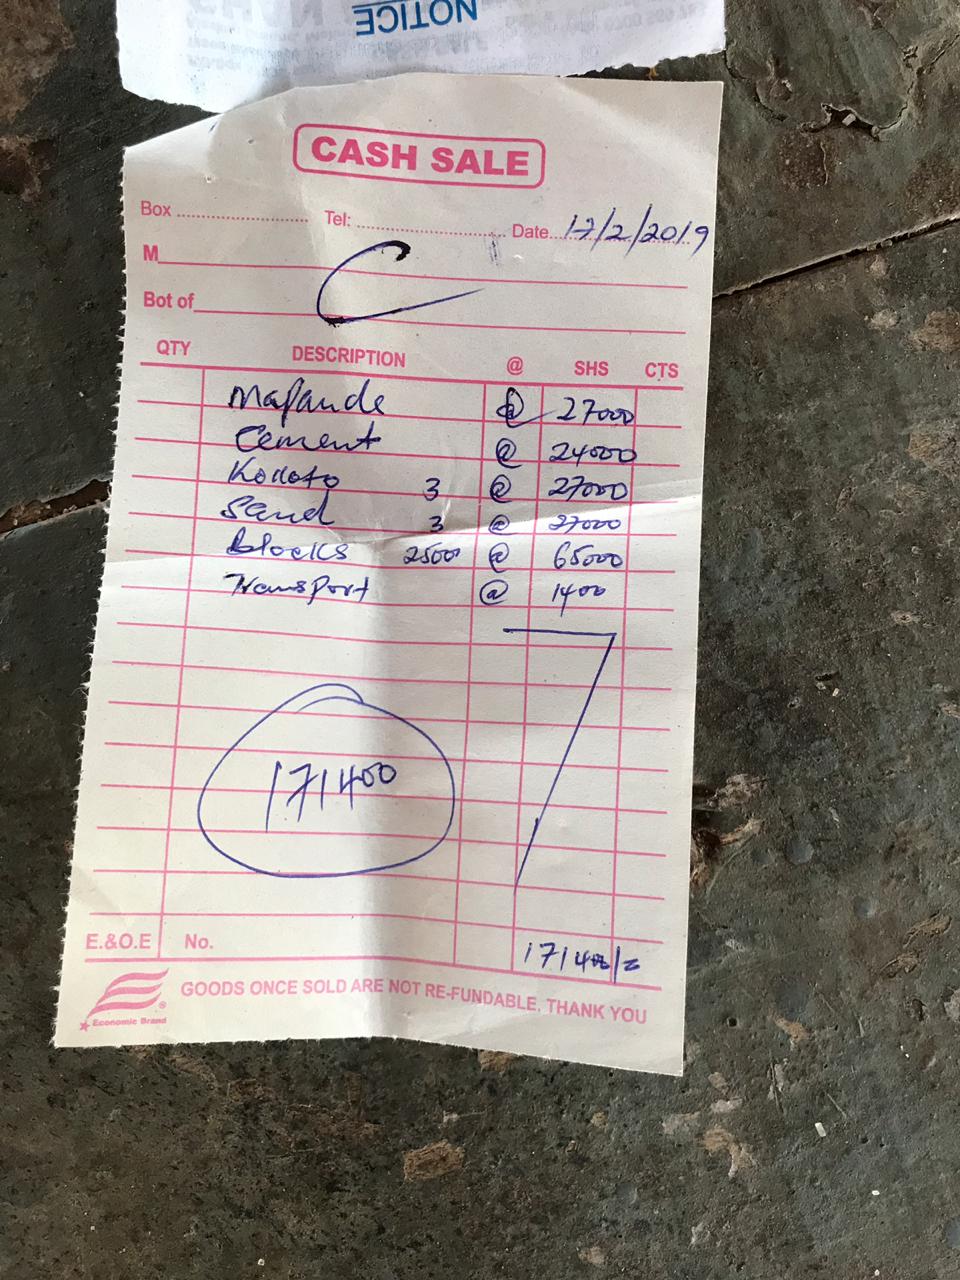 NOTICE
CASH SALE
Box Tel: Date 17/2/2019
M
Bot of
QTY DESCRIPTION @ SHS CTS
Mafande @ 27000
Cement @ 24000
Kokoto 3 @ 27000
Sand 3 @ 27000
Blocks 2500 @ 65000
Transport @ 1400
171400
E.&O.E No. 171400/=
Economic Brand ®
GOODS ONCE SOLD ARE NOT RE-FUNDABLE. THANK YOU